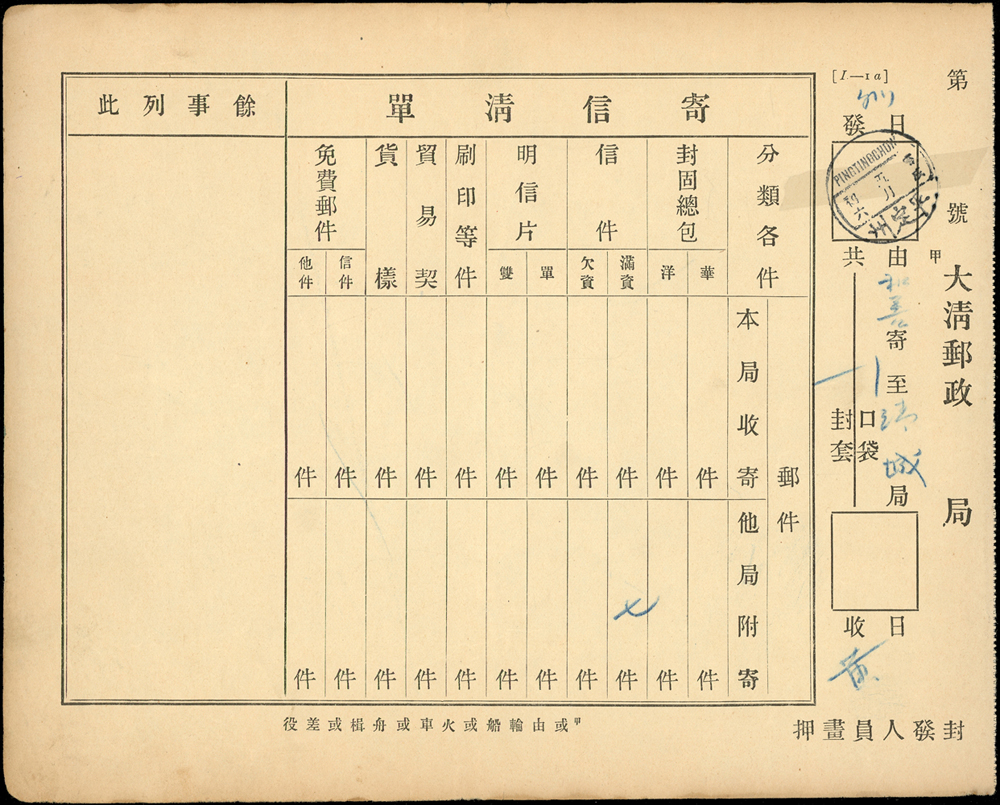 [I—1a]
第
號
大清郵政
局
日
發
PINGTINGCHOW
平定州
甲
由
寄至
城
局
共
口袋
封套
日
收
封發人員畫押
寄信清單
餘事列此
分類各件
封固總包
華
洋
信件
滿資
欠資
明信片
單
雙
刷印等件
貿易契
貨樣
免費郵件
信件
他件
郵件
本局收寄
件 件 件 件 件 件 件 件 件 件 件
他局附寄
七
件 件 件 件 件 件 件 件 件 件 件
甲或由輪船或火車或舟楫或差役